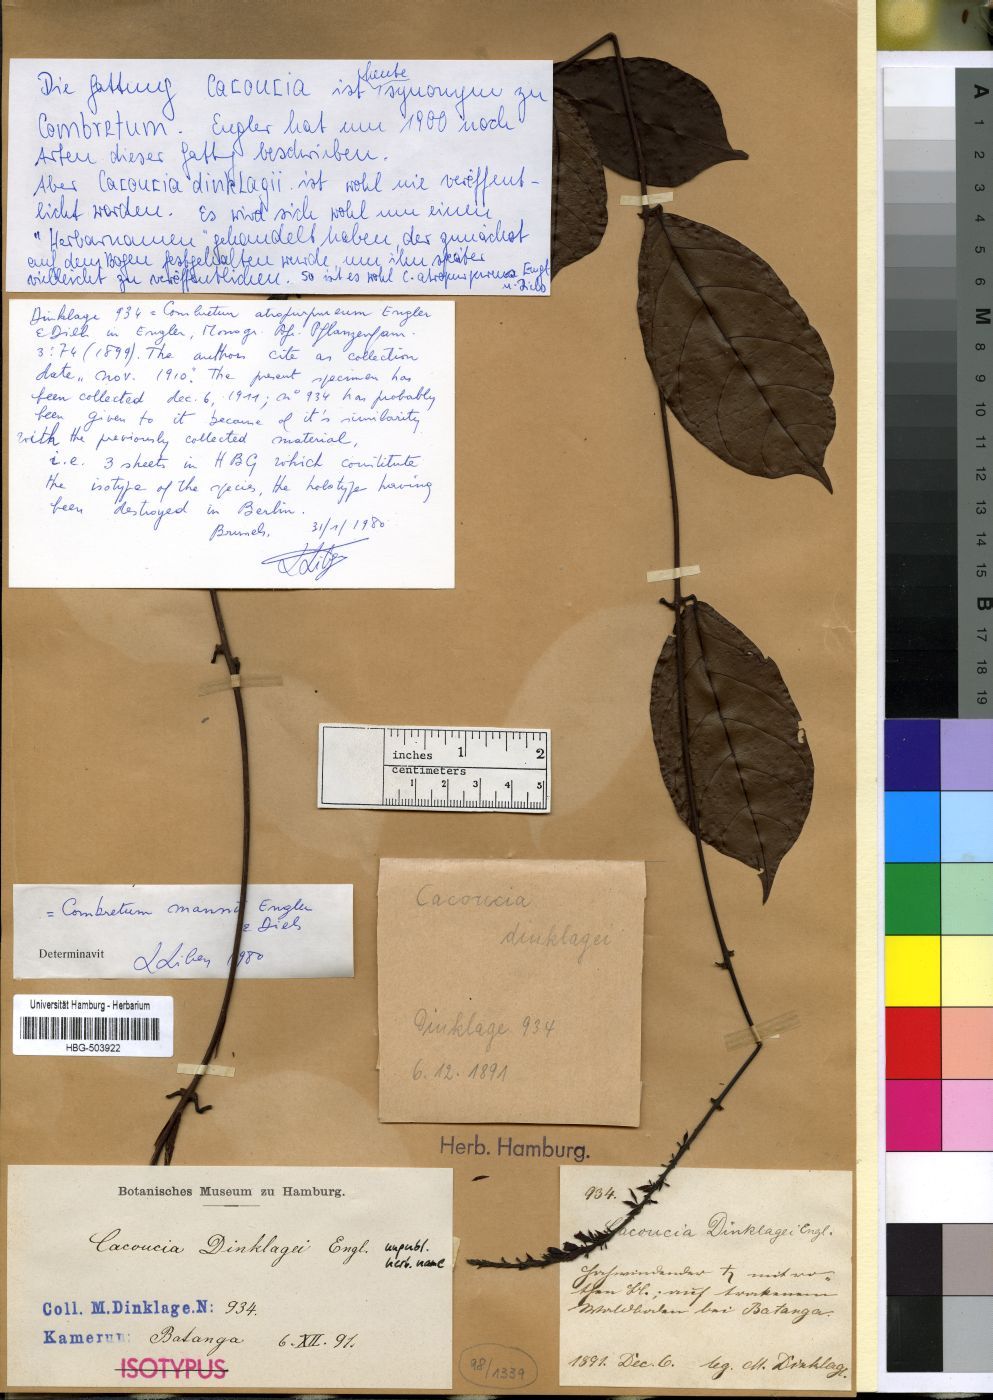 Die Gattung CACOUCIA ist heute synonym zu
Combretum. Engler hat um 1900 noch
Arten dieser Gattg beschrieben.
Aber Cacoucia dinklagii ist wohl nie veröffent-
licht worden. Es wird sich wohl um einen
"Herbarnamen" gehandelt haben, der zunächst
auf dem Bogen festgehalten wurde, um ihn später
vielleicht zu veröffentlichen. So ist es wohl C. atropurpureum Engl.
u. Diels
Dinklage 934 = Combretum atropurpureum Engler
& Diels in Engler, Monogr. Afr. Pflanzenfam.
3:74 (1899). The authors cite as collection
date „ nov. 1910". The present specimen has
been collected dec. 6, 1911; n° 934 has probably
been given to it because of it's similarity
with the previously collected material,
i.e. 3 sheets in HBG which constitute
the isotype of the species, the holotype having
been destroyed in Berlin.
Brussels, 31/1/1980
LLiben
inches 1 2
centimeters
1 2 3 4 5
Cacoucia
dinklagei
Dinklage 934
6.12.1891
= Combretum mannii Engler
& Diels
Determinavit LLiben 1980
Universität Hamburg - Herbarium
HBG-503922
Herb. Hamburg.
Botanisches Museum zu Hamburg.
Cacoucia Dinklagei Engl. unpubl.
herb. name
Coll. M. Dinklage. N: 934.
Kamerun: Batanga 6. XII. 91.
ISOTYPUS
98/1339
934.
Cacoucia Dinklagei Engl.
Hochwindender ♄ mit ro-
then Bl.; auf trockenem
Waldboden bei Batanga.
1891. Dec. 6. leg. M. Dinklage.
A 1 2 3 4 5 6 M 8 9 10 11 12 13 14 15 B 17 18 19